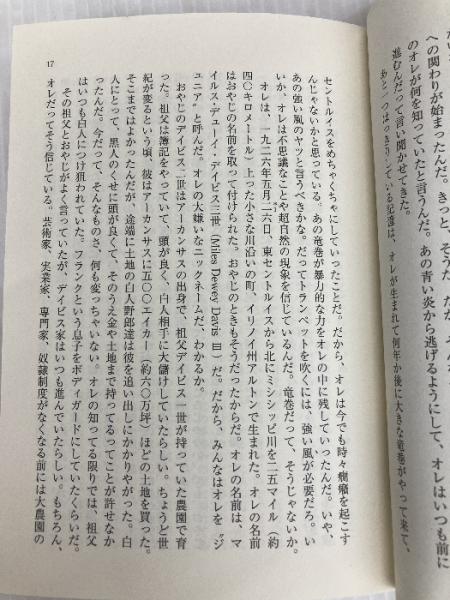 への関わりが始まったんだ。きっと、そうだ、
のオレが何を知っていたと言うんだ。あの青い炎から逃げるようにして、オレはいつも前に
進むんだって言い聞かせてきた。
セントルイスをめちゃくちゃにしていったことだ。だから、オレは今でも時々癇癪を起こす
んじゃないかと思っている。あの竜巻が暴力的な力をオレの中に残していったんだ。いや、
あの強い風のヤツと言うべきかな。だってトランペットを吹くには、強い風が必要だろ。い
いか、オレは不思議なことや超自然の現象を信じているんだ。竜巻だって、そうじゃないか。
オレは、一九二六年五月二六日、東セントルイスから北にミシシッピ川を二五マイル（約
四〇キロメートル）上った小さな川沿いの町、イリノイ州アルトンで生まれた。オレの名前
はおやじの名前を取って付けられた。おやじのときもそうだったからだ。オレの名前は、マ
イルス・デューイ・デイビス三世（Miles Dewey Davis Ⅲ）だ。だから、みんなはオレを〝ジ
ュニア〟と呼んだ。オレの大嫌いなニックネームだ、わかるか。
おやじのデイビス二世はアーカンサスの出身で、祖父デイビス一世が持っていた農園で育
った。祖父は簿記をやっていて、頭が良く、白人相手に大儲けしていたらしい。ちょうど世
紀が変るという頃、彼はアーカンサスに五〇〇エイカー（約六〇万坪）ほどの土地を買った。
そこまではよかったんだが、途端に土地の白人野郎達は彼を追い出しにかかりやがった。白
人にとって、黒人のくせに頭が良くて、そのうえ金や土地まで持ってるってことが許せなか
ったんだ。今だって、そんなものさ、何も変っちゃいない。オレの知ってる限りでは、祖父
はいつも白人につけ狙われていた。フランクという息子をボディガードにしていたくらいだ。
その祖父とおやじがよく言っていたが、デイビス家はいつも進んでいたらしい。もちろん、
オレだってそう信じている。芸術家、実業家、専門家、奴隷制度がなくなる前には大農園の
17